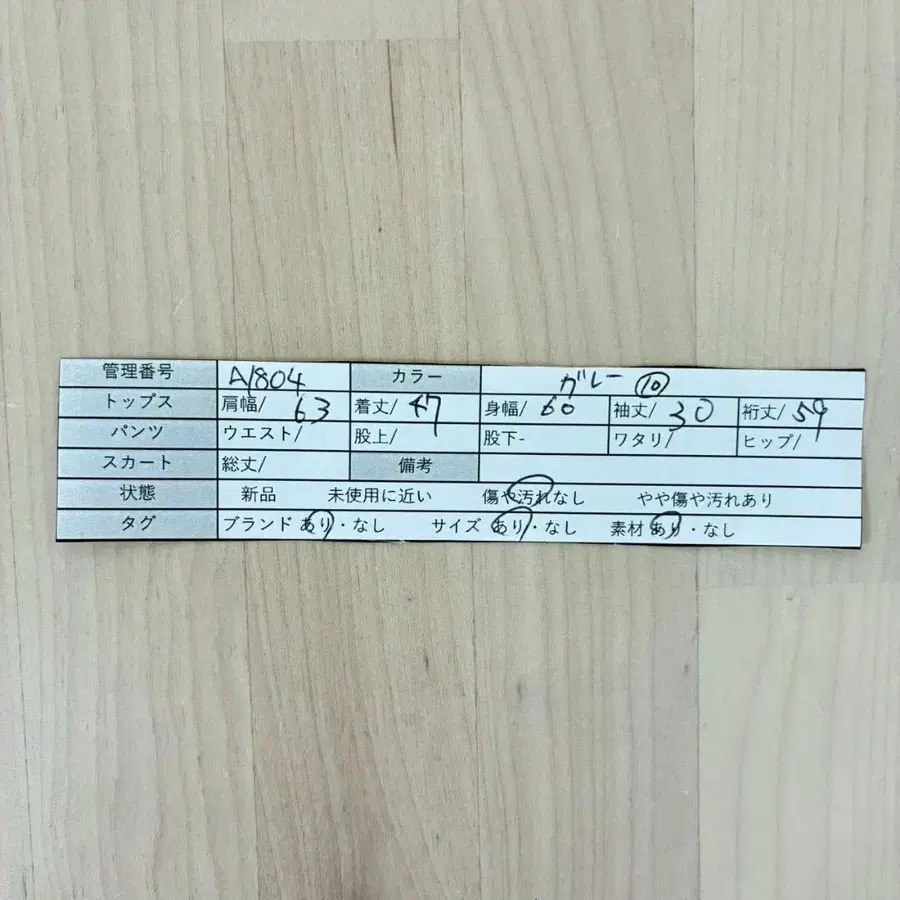 管理番号 A1804 カラー グレー ⑩
トップス 肩幅/ 63 着丈/ 47 身幅/ 60 袖丈/ 30 裄丈/ 59
パンツ ウエスト/ 股上/ 股下- ワタリ/ ヒップ/
スカート 総丈/ 備考
状態 新品 未使用に近い 傷や汚れなし やや傷や汚れあり
タグ ブランド あり・なし サイズ あり・なし 素材 あり・なし